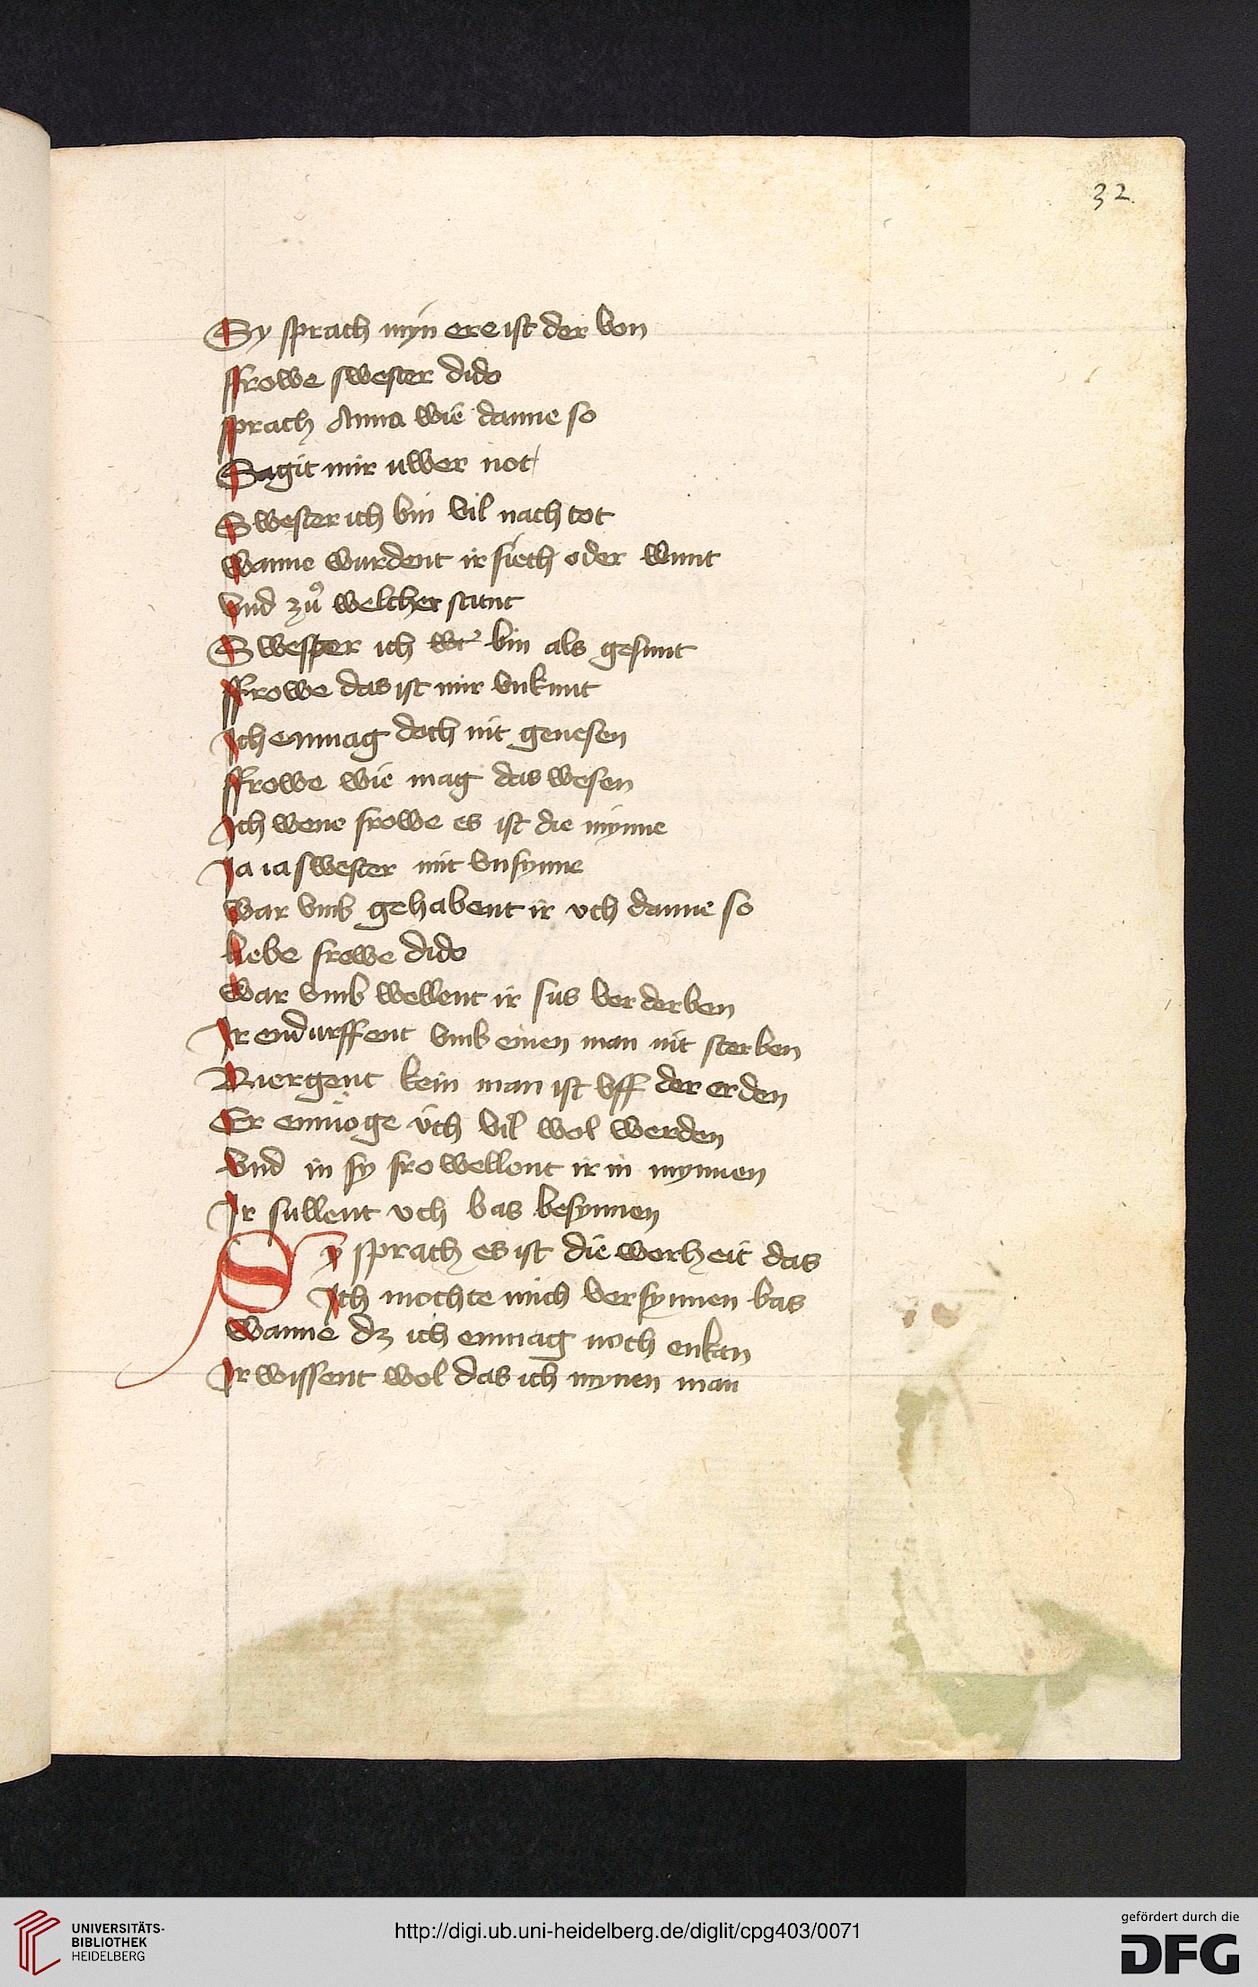 32
Sy sprach myn ere ist der von
ffrowe swester dido
sprach Anna wie danne so
Sagit mir uwer not
Swester ich bin vil nach tot
wanne wurdent ir siech oder wunt
Vnd zů welcher stunt
Swester ich bin als gesunt
ffrowe das ist mir vnkunt
Ich enmag doch nit genesen
ffrowe wie mag das wesen
Ich wene frowe es ist die mynne
Ja ia swester mit vnsynne
war vmb gehabent ir vch danne so
liebe frowe dido
War vmb wellent ir sus verderben
Ir endurffent vmb einen man nit sterben
Niergent kein man ist vff der erden
Er enmoge uch vil wol werden
Vnd in sy fro wellent ir in mynnen
Ir sullent vch bas besynnen
Sy sprach es ist die worheit das
Ich mochte mich versynnen bas
Wanne dz ich enmag noch enkan
Ir wissent wol das ich mynen man
UNIVERSITÄTS-
BIBLIOTHEK
HEIDELBERG
http://digi.ub.uni-heidelberg.de/diglit/cpg403/0071
gefördert durch die
DFG